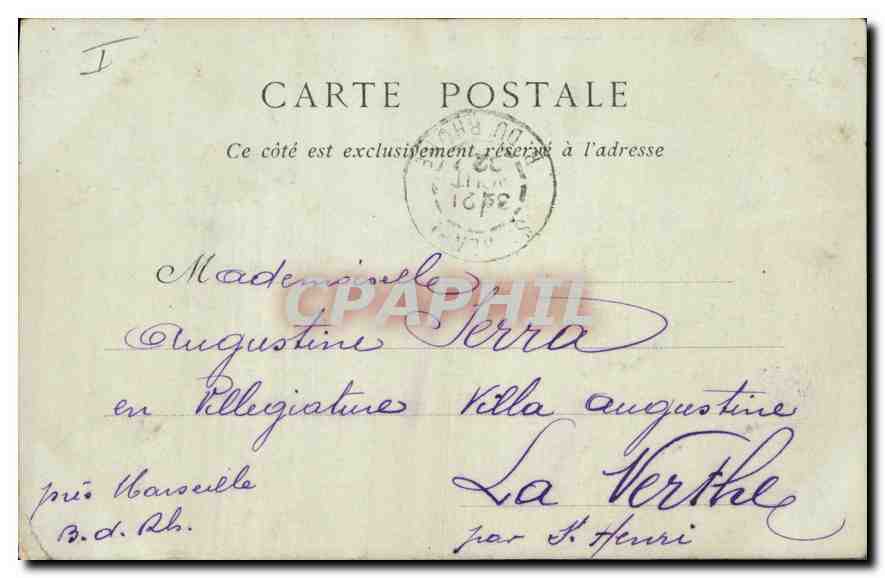 I
CARTE POSTALE
Ce côté est exclusivement réservé à l'adresse
DU RHÔNE
3E 21
AOUT
02
CPAPHIL
Mademoiselle
Augustine Serra
en Villegiature Villa Augustine
La Verthe
par St. Henri
près Marseille
B. d. Rh.